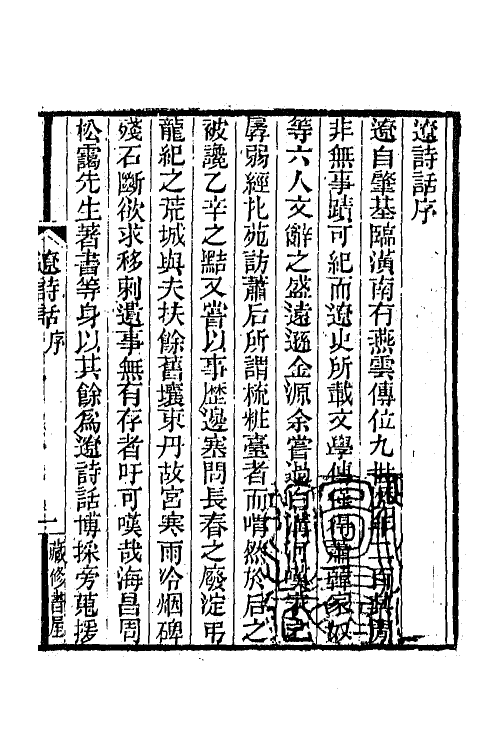 遼詩話序
遼自肇基臨潢南有燕雲傳位九世年二百其間
非無事蹟可紀而遼史所載文學傳僅得蕭韓家奴
等六人文辭之盛遠遜金源余嘗過白溝河嘆宋之
孱弱經北苑訪蕭后所謂梳粧臺者而喟然於后之
被讒乙辛之黠又嘗以事歷邊塞問長春之廢淀弔
龍紀之荒城與夫扶餘舊壤東丹故宮寒雨冷烟碑
殘石斷欲求移剌遺事無有存者吁可嘆哉海昌周
松靄先生著書等身以其餘爲遼詩話博採旁蒐援
遼詩話序
一
藏修書屋